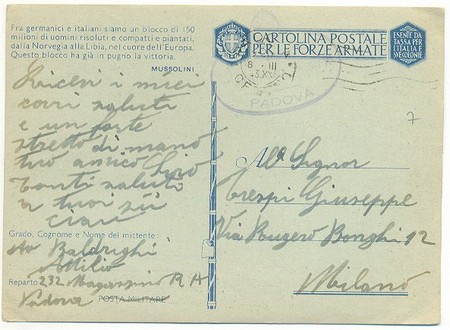 Fra germanici e italiani siamo un blocco di 150
milioni di uomini risoluti e compatti e piantati,
dalla Norvegia alla Libia, nel cuore dell'Europa.
Questo blocco ha già in pugno la vittoria.
MUSSOLINI
CARTOLINA POSTALE
PER LE FORZE ARMATE
ESENTE DA
TASSA PER
L'ITALIA E
LE COLONIE
PADOVA
7
Ricevi i miei
cari saluti
e un forte
stretto di mano
tuo amico
Tanti saluti
a tuoi zii
ciau
Al Signor
Crespi Giuseppe
Via Rugero Bonghi 12
Milano
Grado, Cognome e Nome del mittente:
Av Baldrighi
Attilio
Reparto 232 Magazzino R A
Padova
POSTA MILITARE